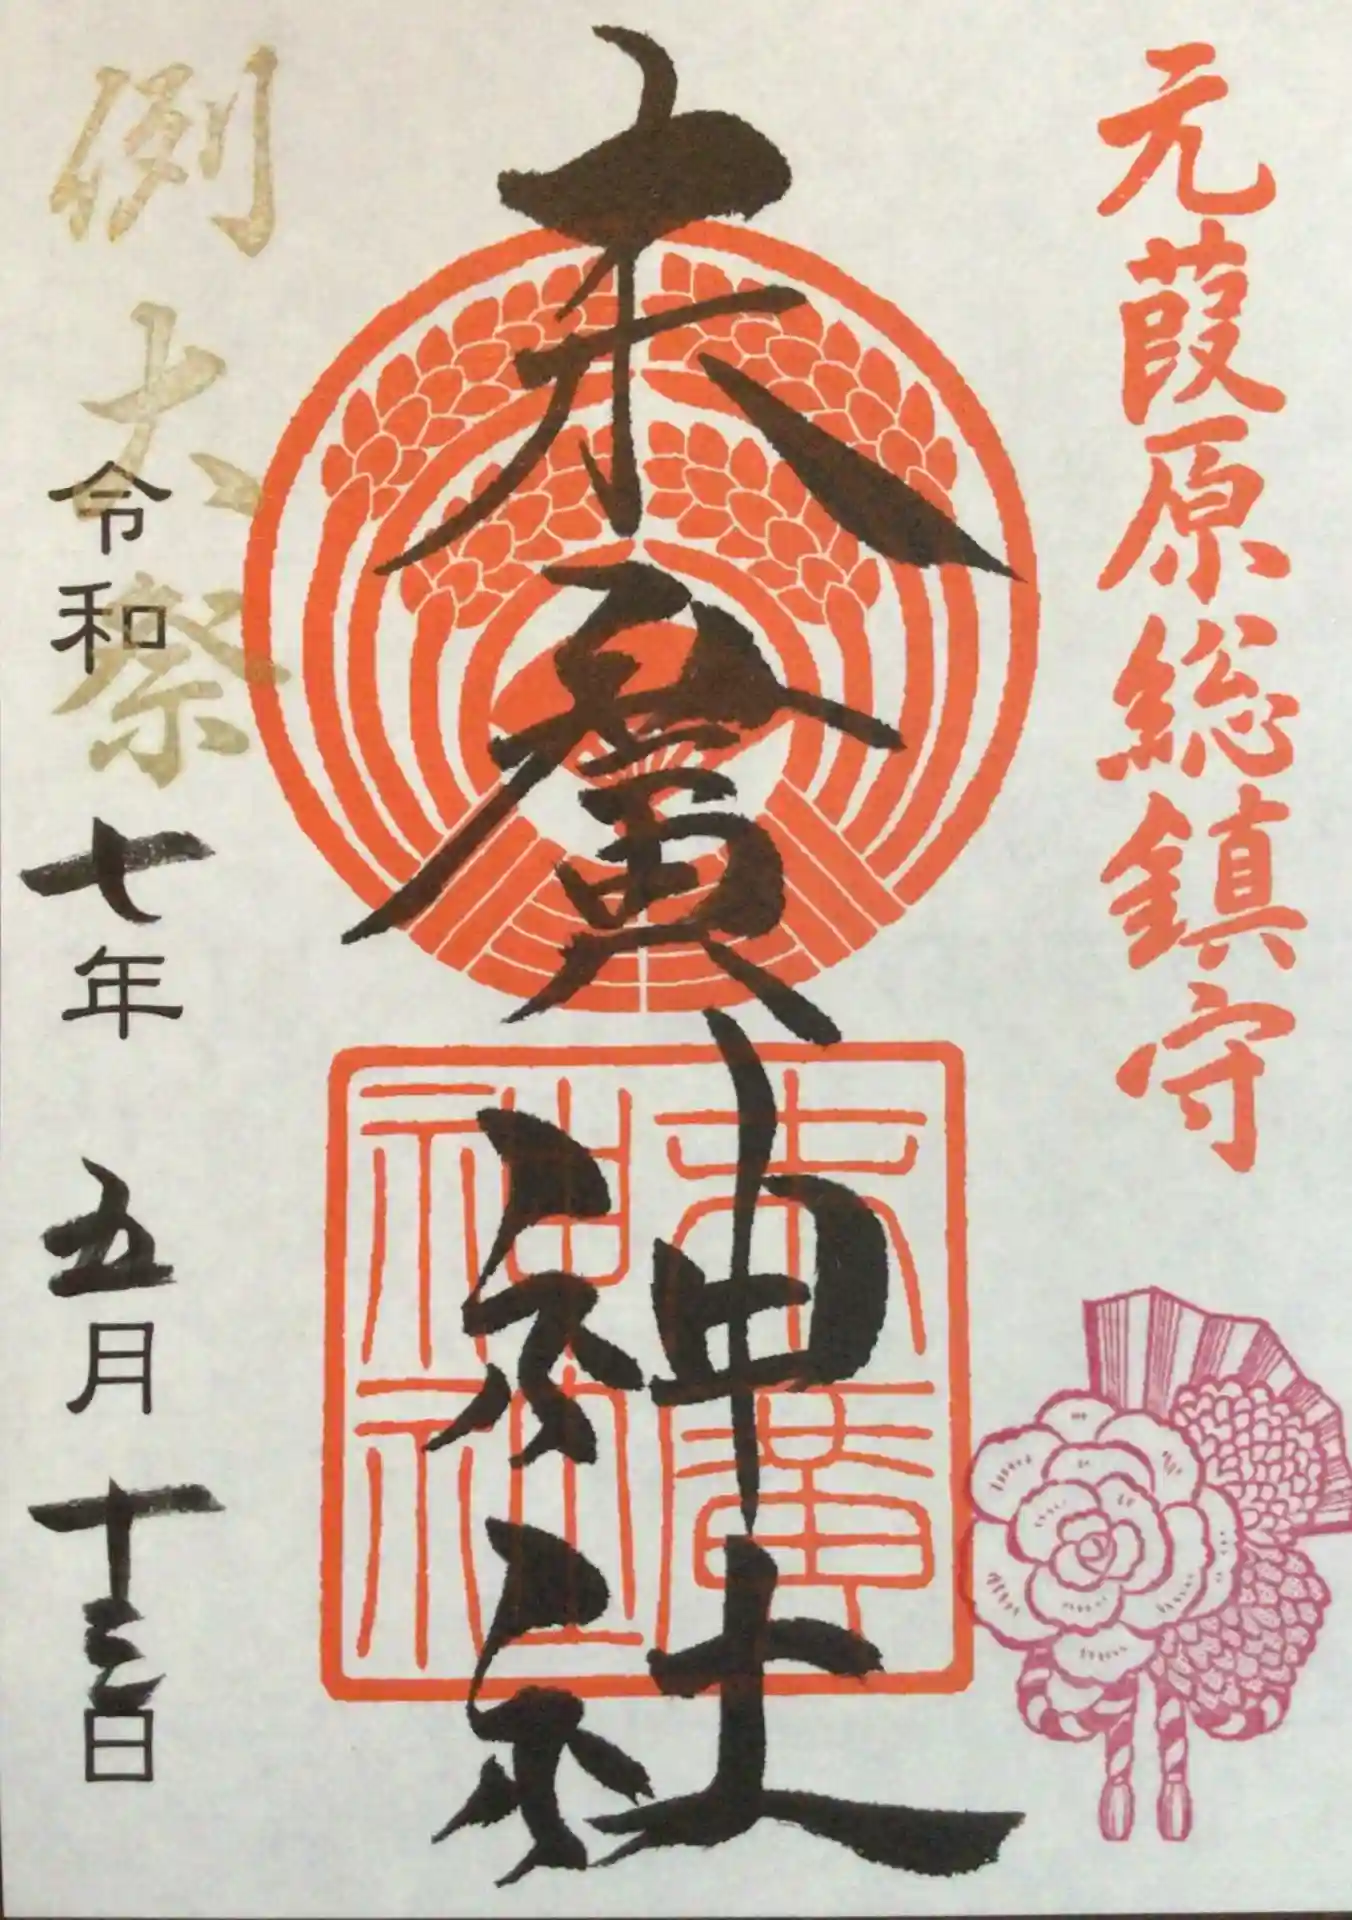 元葭原総鎮守
末廣神社
末廣
神社
例大祭
令和七年 五月 十三日